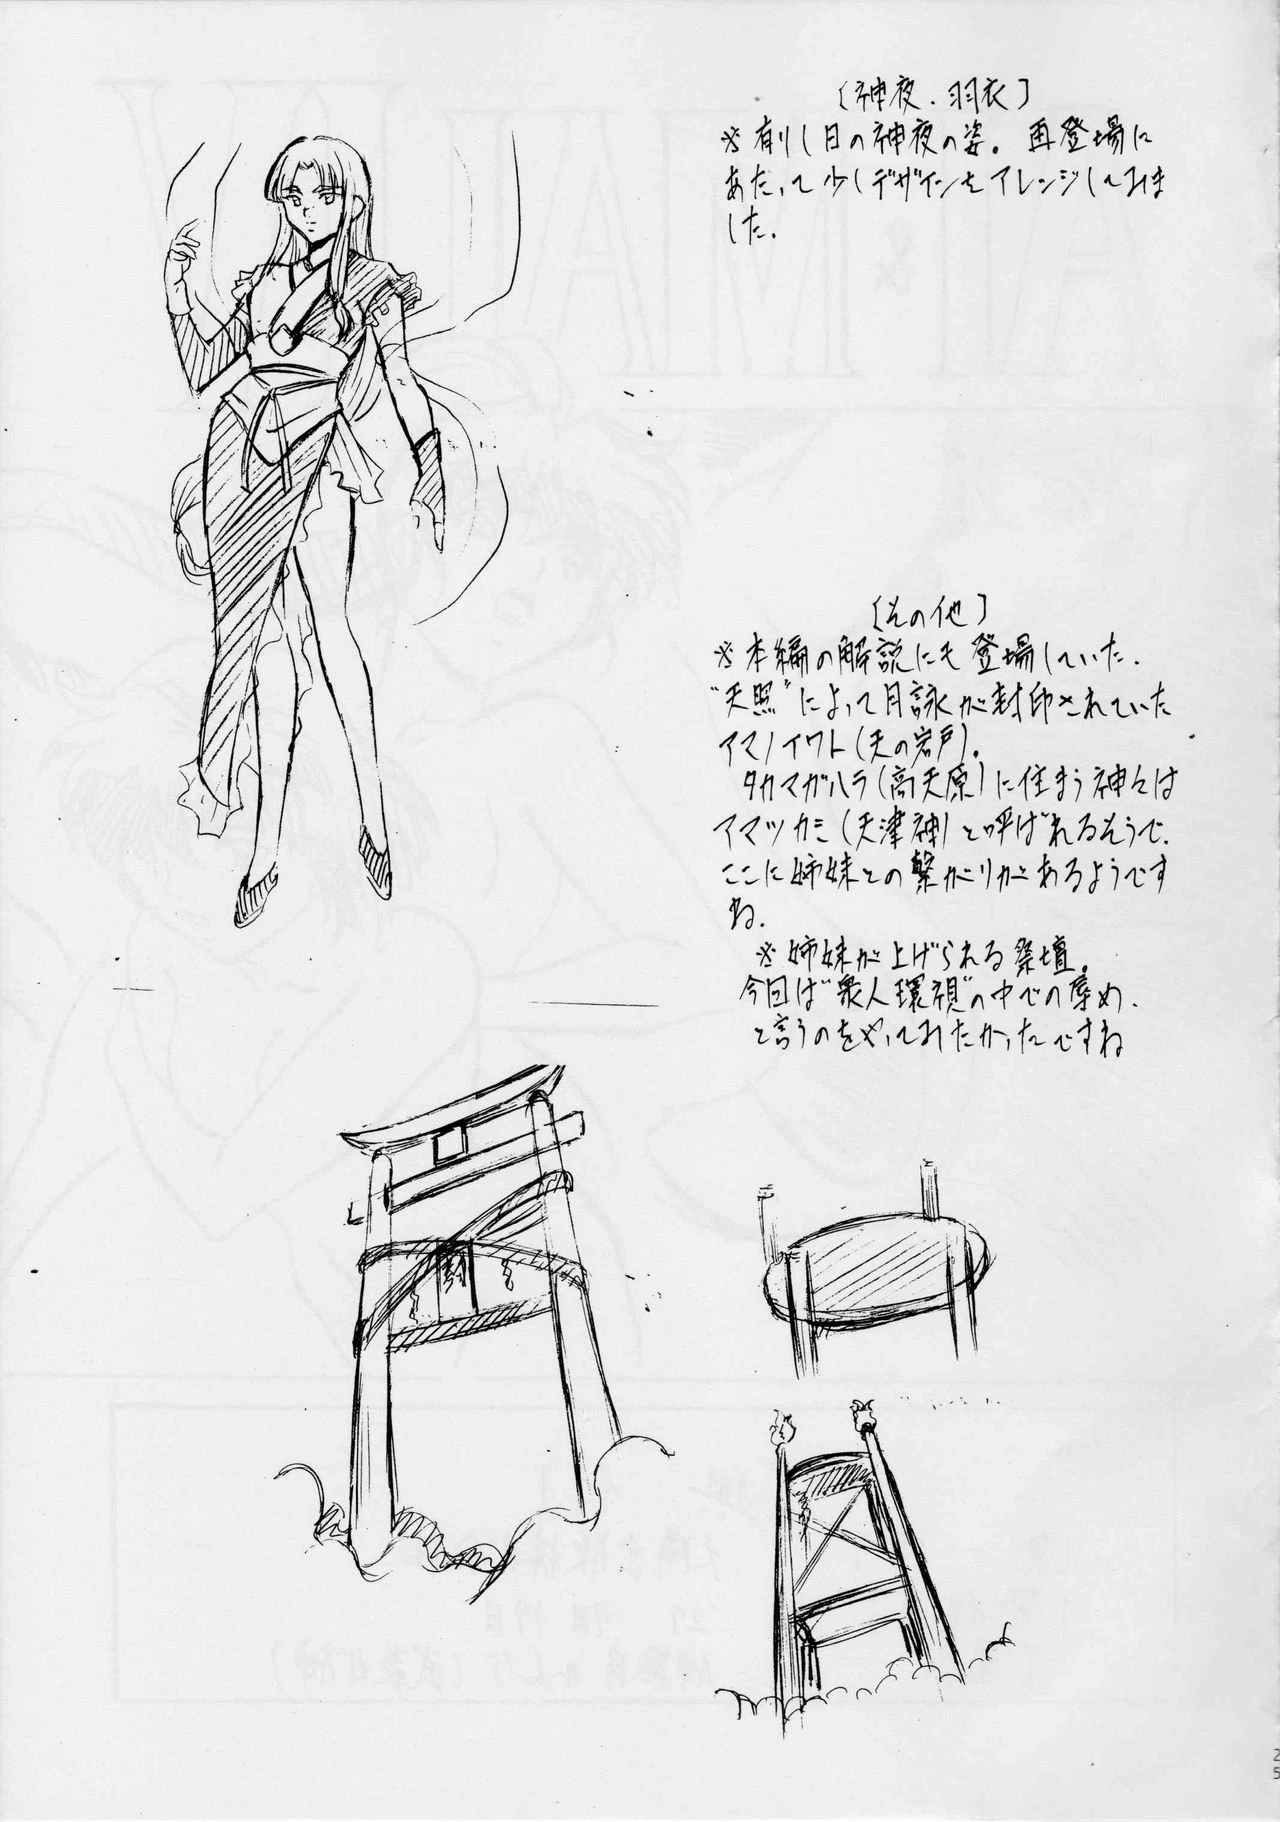 〔神夜.羽衣〕
※有りし日の神夜の姿。再登場に
あたって少しデザインをアレンジしてみま
した.
〔その他〕
※本編の解説にも登場していた.
"天照"によって月詠が封印されていた
アマノイワト(天の岩戸)。
タカマガハラ(高天原)に住まう神々は
アマツカミ(天津神)と呼ばれるそうで.
ここに姉妹との繋がりがあるようです
ね.
※姉妹が上げられる祭壇。
今回は"衆人環視"の中での辱め.
と言うのをやってみたかったですね
封
25